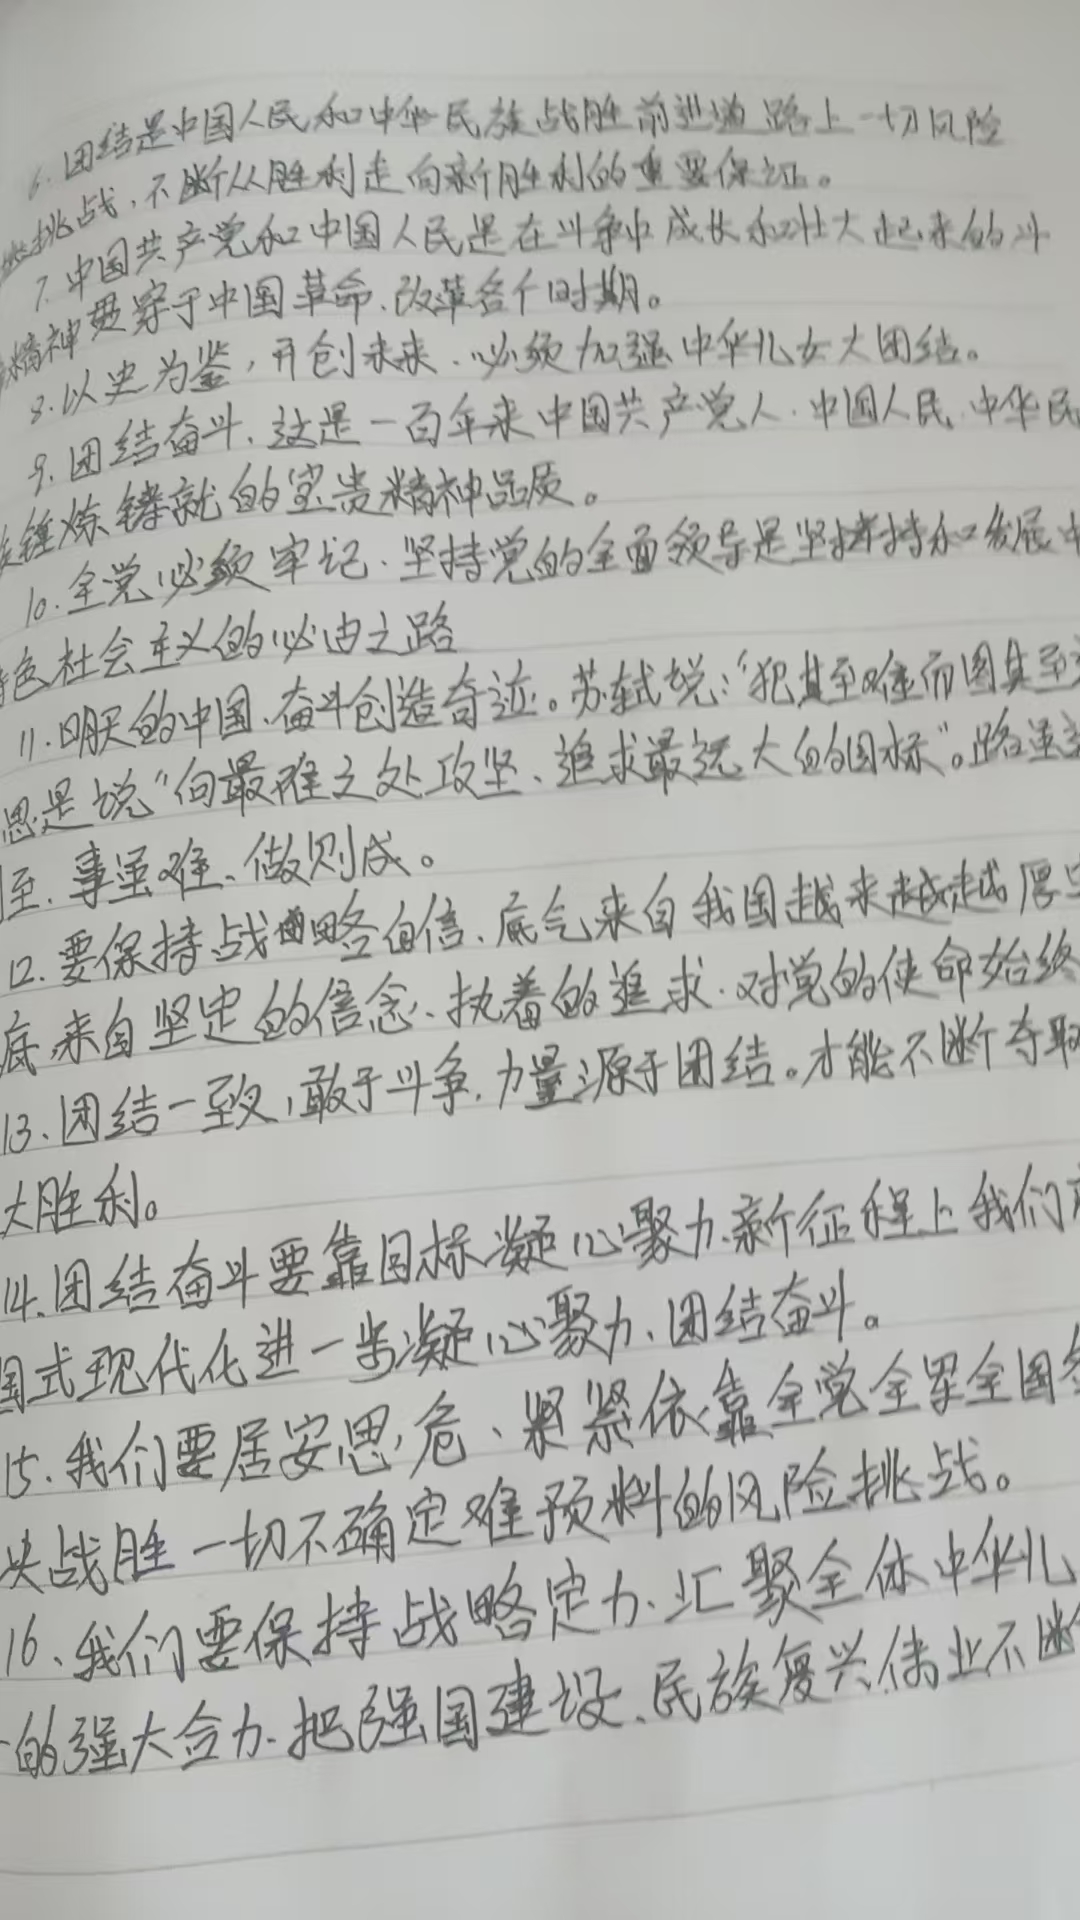 6. 团结是中国人民和中华民族战胜前进道路上一切风险
挑战，不断从胜利走向新胜利的重要保证。
7. 中国共产党和中国人民是在斗争中成长和壮大起来的斗
精神贯穿于中国革命、改革各个时期。
8. 以史为鉴，开创未来、必须加强中华儿女大团结。
9. 团结奋斗、这是一百年来中国共产党人、中国人民、中华民
族锤炼铸就的宝贵精神品质。
10. 全党必须牢记、坚持党的全面领导是坚持持和发展中
特色社会主义的必由之路
11. 明天的中国、奋斗创造奇迹。苏轼说：“犯其至难而图其至
思是说“向最难之处攻坚、追求最远大的目标”。路虽
至、事虽难、做则成。
12. 要保持战略自信、底气来自我国越来越越厚
底来自坚定的信念、执着的追求、对党的使命始终
13、团结一致，敢于斗争，力量源于团结。才能不断夺取
大胜利。
14、团结奋斗要靠目标凝心聚力、新征程上我们
国式现代化进一步凝心聚力、团结奋斗。
15、我们要居安思危、紧紧依靠全党全军全国
决战胜一切不确定难预料的风险挑战。
16、我们要保持战略定力、汇聚全体中华儿
的强大合力、把强国建设、民族复兴伟业不断